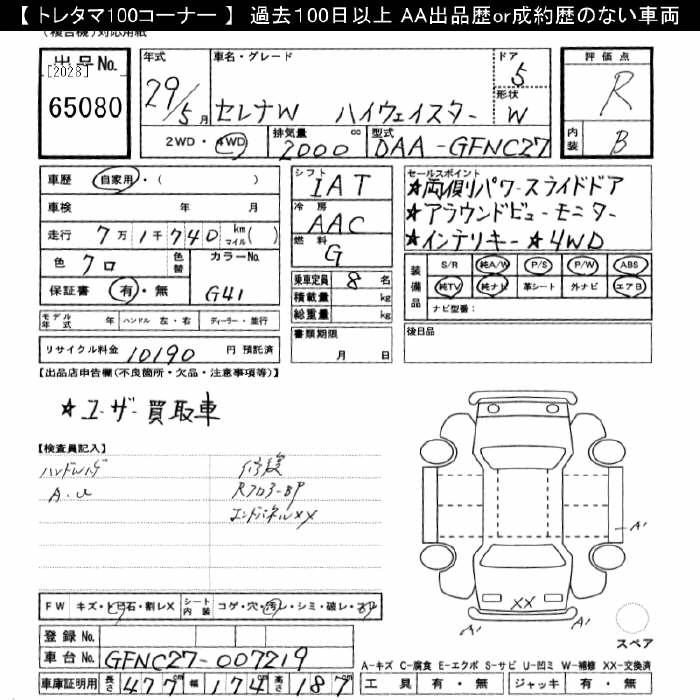 【 トレタマ100コーナー 】 過去100日以上 AA出品歴or成約歴のない車両
(複合機)対応用紙
出品No.
[2028]
65080
年式
29/5月
車名・グレード
セレナW ハイウェイスター
ドア
5
形状
W
評価点
R
内装
B
2WD・4WD
排気量
2000
cc
型式
DAA-GFNC27
車歴
自家用・( )
車検 年 月
走行 7万 1千 740 km マイル( )
色 クロ
色替
カラーNo.
G41
保証書 有・無
モデル年式 年 ハンドル 左・右 ディーラー・並行
リサイクル料金 10190 円 預託済
シフト
IAT
冷房
AAC
燃料
G
乗車定員 8 名
積載量 kg
総重量 kg
書類期限
月 日
セールスポイント
★両側パワースライドドア
★アラウンドビューモニター
★インテリキー ★4WD
装備品
S/R 純A/W P/S P/W ABS
純TV 純ナビ 革シート 外ナビ エアB
ナビ型番:
後日品
【出品店申告欄(不良箇所・欠品・注意事項等)】
★ユーザー買取車
【検査員記入】
A.U
修復
エンドパネルXX
A'
XX
A' A'
スペア
FW キズ・ヒ石・割レX シート内装 コゲ・穴・汚レ・シミ・破レ・スレ
登録No.
車台No. GFNC27-007219
車庫証明用 長さ 477 cm 幅 174 cm 高さ 187 cm
A-キズ C-腐食 E-エクボ S-サビ U-凹ミ W-補修 XX-交換済
工具 有・無 ジャッキ 有・無